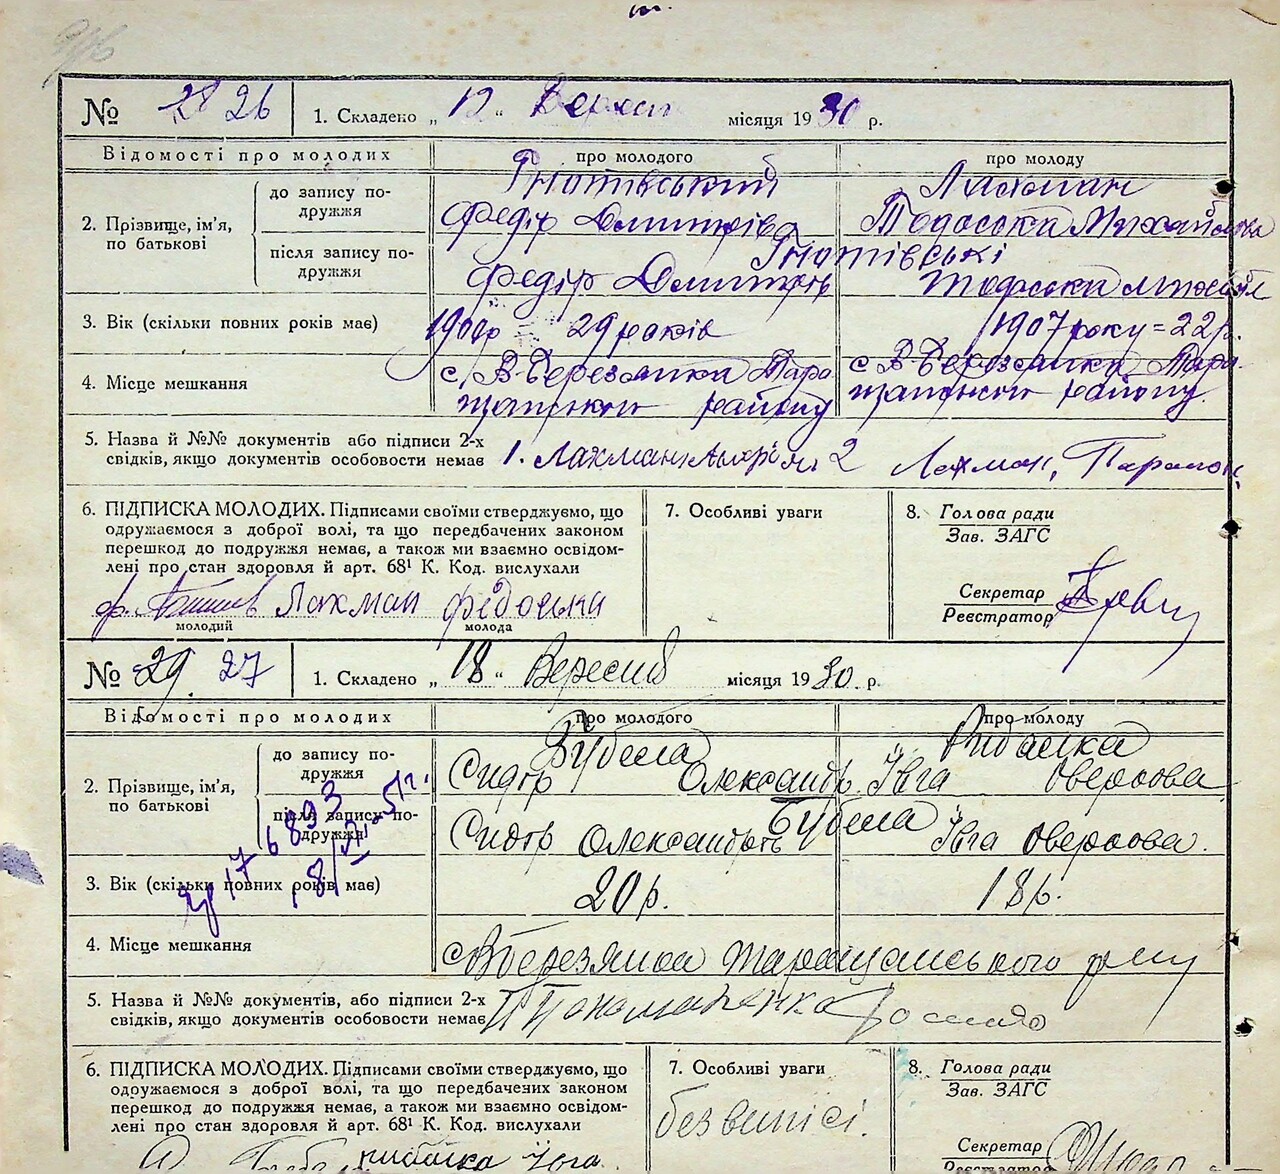 № 28 26 1. Складено „ 12 “ Верес місяця 1930 р.
Відомості про молодих про молодого про молоду
2. Прізвище, ім’я, по батькові
до запису подружжя
Гнатівський
Федір Дмитрів
Лахман
Тодоська Михайловна
після запису подружжя
Гнатівські
Федір Дмитрів
Тодоська Михайл
3. Вік (скільки повних років має) 29 років 1907 року = 22 р.
4. Місце мешкання
с. В-Березянка Тара
щанськ району
с. В-Березянка Тара
щанськ району
5. Назва й №№ документів або підписи 2-х
свідків, якщо документів особовости немає 1. Лахман 2 Лахман,
6. ПІДПИСКА МОЛОДИХ. Підписами своїми стверджуємо, що
одружаємося з доброї волі, та що передбачених законом
перешкод до подружжя немає, а також ми взаємно освідом-
лені про стан здоровля й арт. 68¹ К. Код. вислухали
Лахман Федоська
молодий молода
7. Особливі уваги
8. Голова ради
Зав. ЗАГС
Секретар
Реєстратор
№ 29. 27 1. Складено „ 18 “ Вересня місяця 1930. р.
Відомості про молодих про молодого про молоду
2. Прізвище, ім’я, по батькові
до запису подружжя
Бубела
Сидір Олександр.
Рибалка
Івга Оверкова
після запису подружжя
Бубела
Сидір Олександров
Івга Оверкова.
17 6893
3. Вік (скільки повних років має) 20 р. 18 р.
4. Місце мешкання с Вберезянка Таращанського р-ну
5. Назва й №№ документів, або підписи 2-х
свідків, якщо документів особовости немає Пономаренко
6. ПІДПИСКА МОЛОДИХ. Підписами своїми стверджуємо, що
одружаємося з доброї волі, та що передбачених законом
перешкод до подружжя немає, а також ми взаємно освідом-
лені про стан здоровля й арт. 68¹ К. Код. вислухали
7. Особливі уваги
без виписі.
8. Голова ради
Зав. ЗАГС
Секретар
Реєстратор